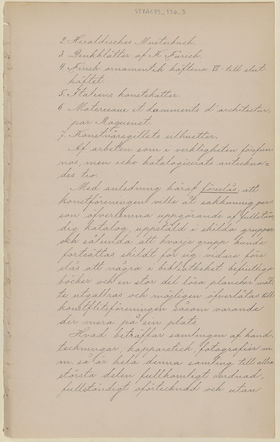 2 Heraldisches Musterbuch.
3 Denkblätter af
4 Finsk ornamentik häftena VI till slut-
häftet.
5. Italiens konstskatter.
6 Materiaux et documents d'architecture,
par Raguenet.
7. Konstnärsgillets silhuetter.
Af arbeten som i verkligheten funnin
nos, men icke katalogiserats antecknades tio.
Med anledning häraf föreslås, att
konstföreningen ville åt sakkunnig per-
son öfverlämna uppgörande af fullstän
dig katalog, uppställd i skilda grupper
och sålunda att hvarje grupp kunde
fortsättas skildt för sig vidare före
slås att några i biblioteket befintliga
böcker och en stor del lösa plancher
utgallras och möjligen öfverlåtas till
konstflitföreningen såsom varande
der mera på sin plats.
Hvad beträffar samlingen af hand
teckningar, kopparstick, fotografier m.
m. så är hela denna samling till allra
största delen fullkomligt ordnad,
fullständigt oförtecknad och utan